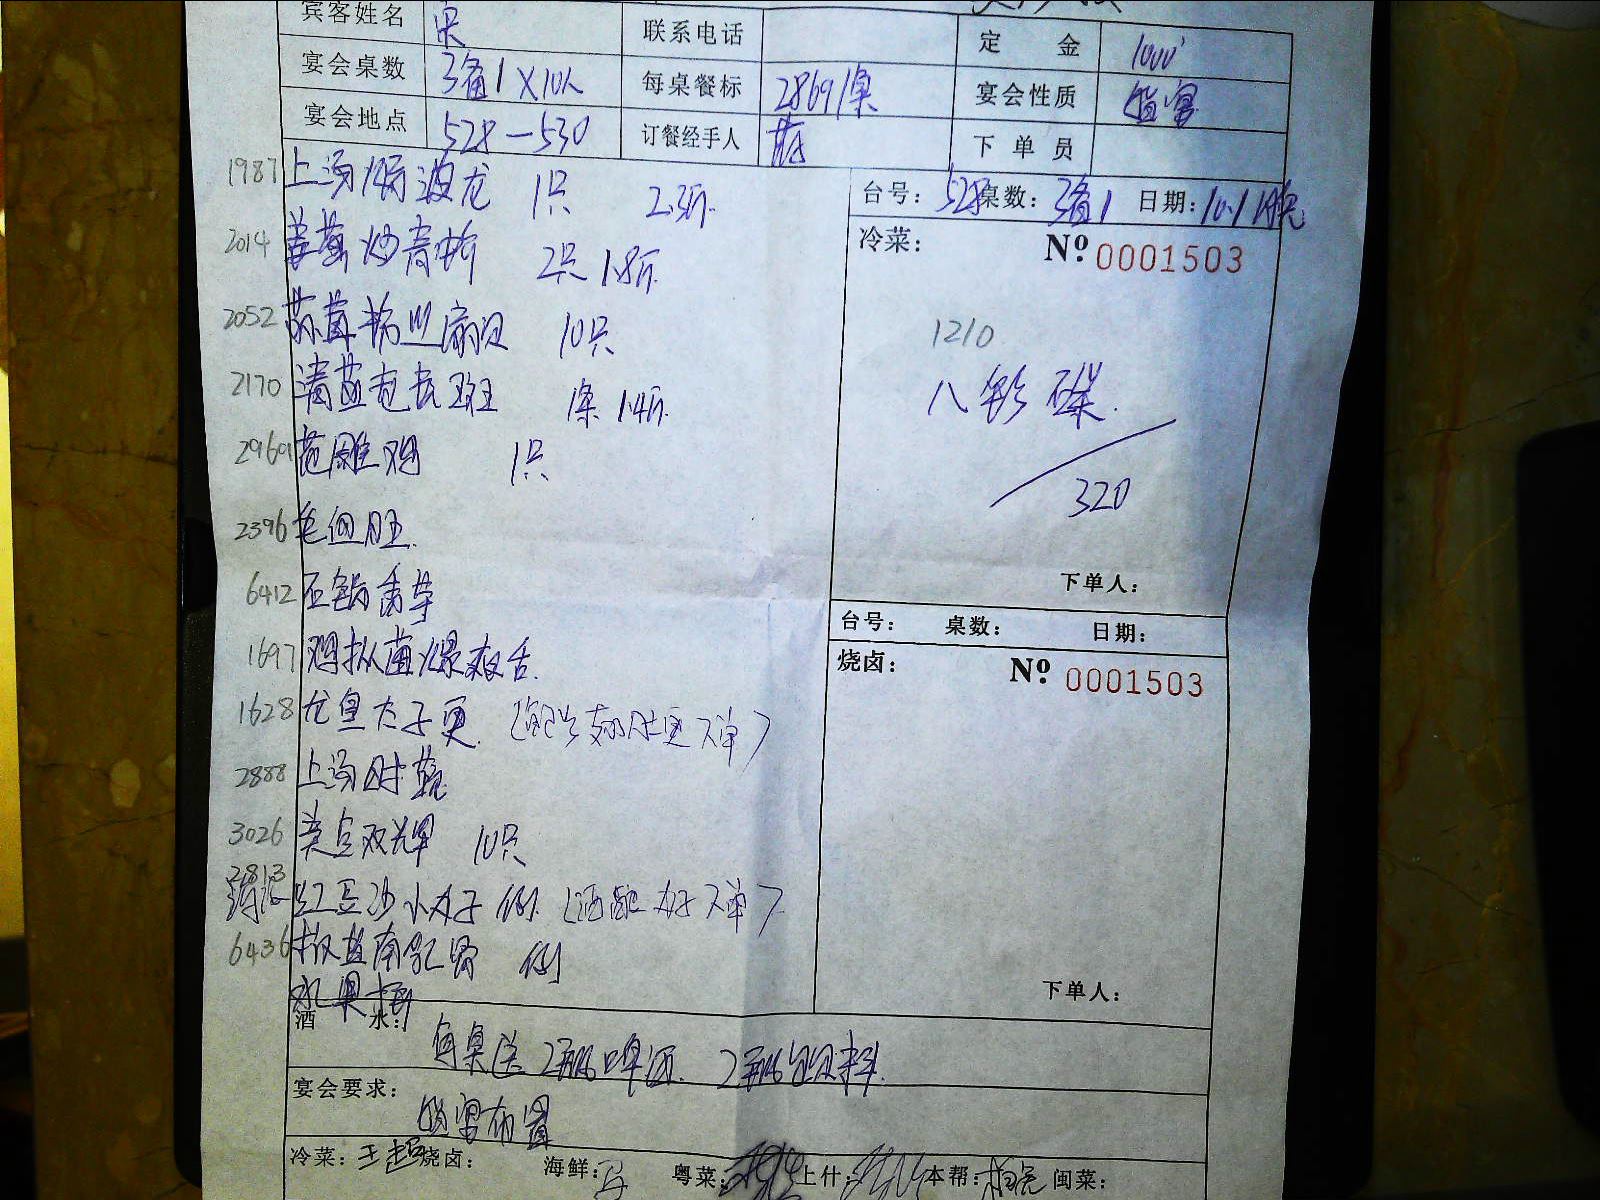 宾客姓名 吴 联系电话 定 金 1000
宴会桌数 3备1X10人 每桌餐标 2869/桌 宴会性质
宴会地点 528—530 订餐经手人 下单员
台号: 528 桌数: 3备1 日期: 10.1晚
1987 上汤焗波龙 1只 2.3斤
2014 姜葱炒青蟹 2只 1.8斤
2052 蒜茸粉丝扇贝 10只
2170 清蒸老虎斑 1条 1.4斤
2969 花雕鸡 1只
2396 毛血旺
6412 石锅
1697 鸡枞菌爆
1628 龙皇太子羹
2888 上汤时蔬
3026 美点双辉 10只
2813 红豆沙小丸子 例
6436 椒盐南 例
水果拼
冷菜: Nº 0001503
1210
八彩碟
320
下单人:
台号: 桌数: 日期:
烧卤: Nº 0001503
下单人:
酒 水: 每桌送2瓶啤酒 2瓶饮料
宴会要求: 布置
冷菜: 王超 烧卤: 海鲜: 粤菜: 上什: 本帮: 闽菜: